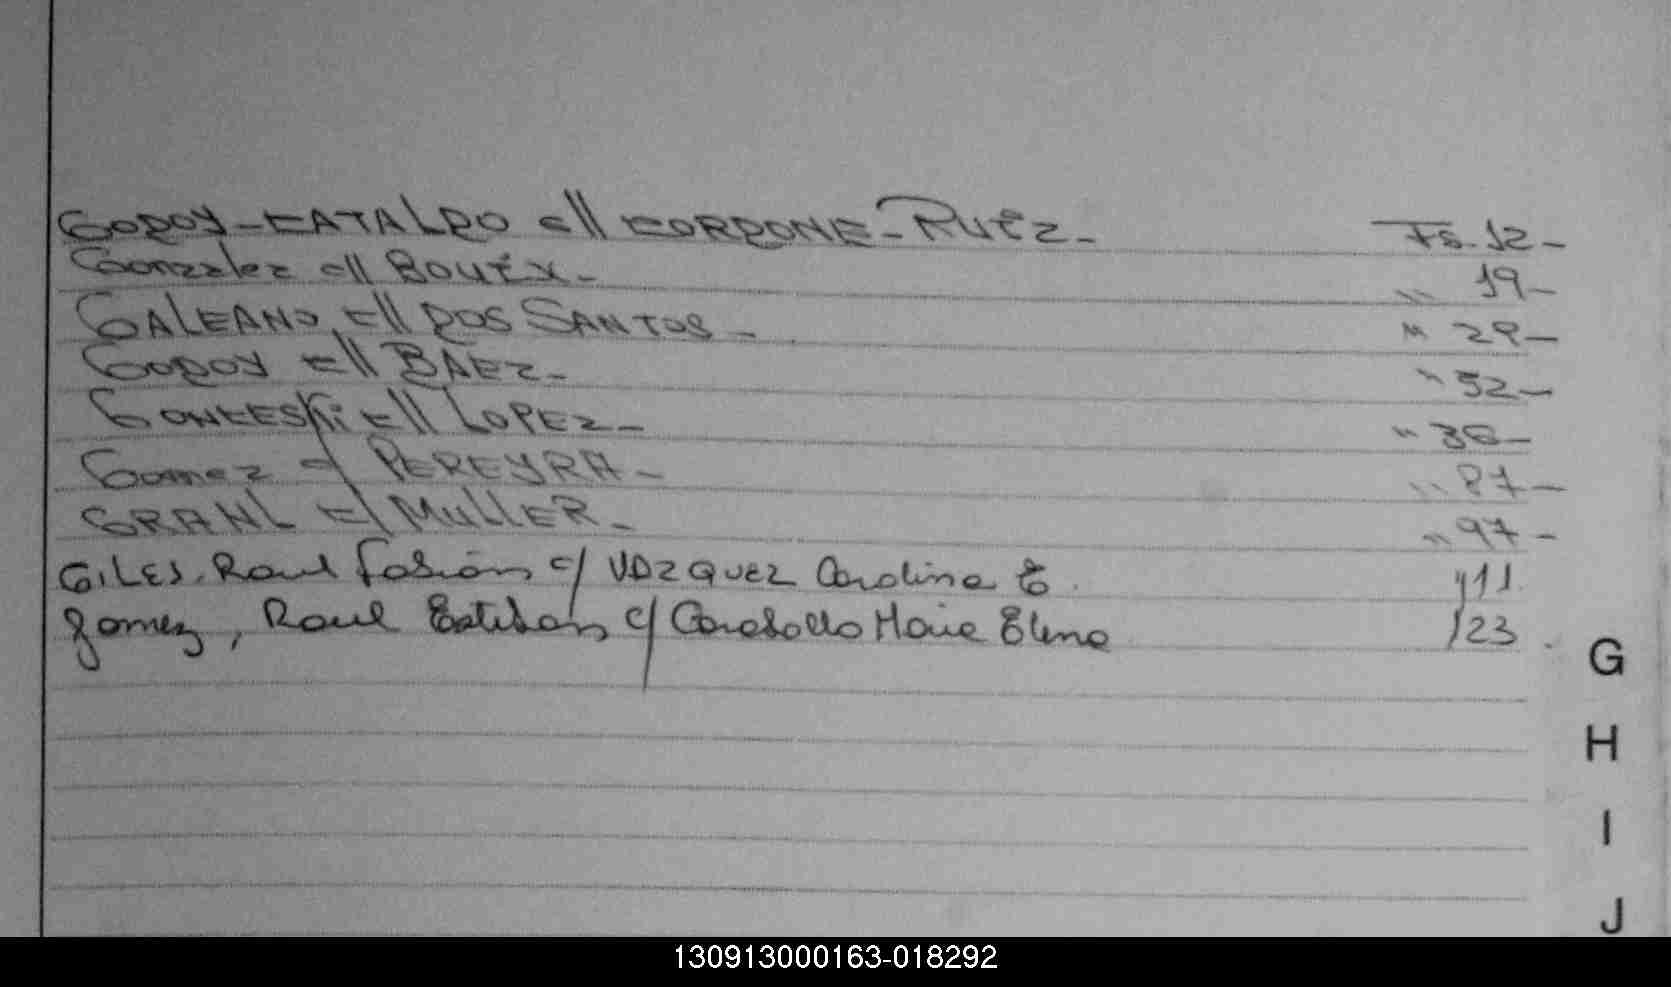 GODOY-CATALDO c// CORDONE-Ruiz- Fs. 12-
Gonzalez c// BOUIX- " 19-
GALEANO c// DOS SANTOS- " 29-
GODOY c// BAEZ- " 52-
GONCESKi c// LOPEZ- " 36-
Gomez c/ PEREYRA- " 87-
GRANL c/ MULLER- " 97-
GILES, Raul Fabián c/ VAZQUEZ Carolina E. 111
Gomez, Raul Esteban c/ Caraballo Maria Elena 123
G
H
I
J
130913000163-018292